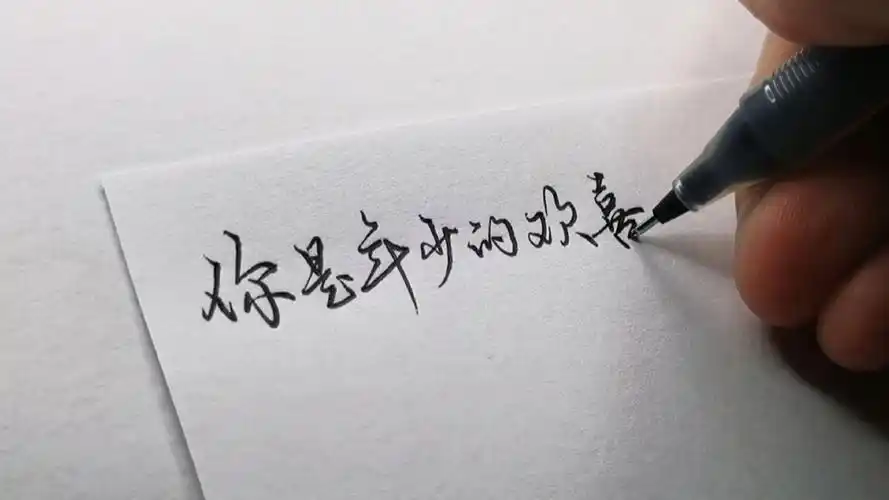 你是年少的欢喜